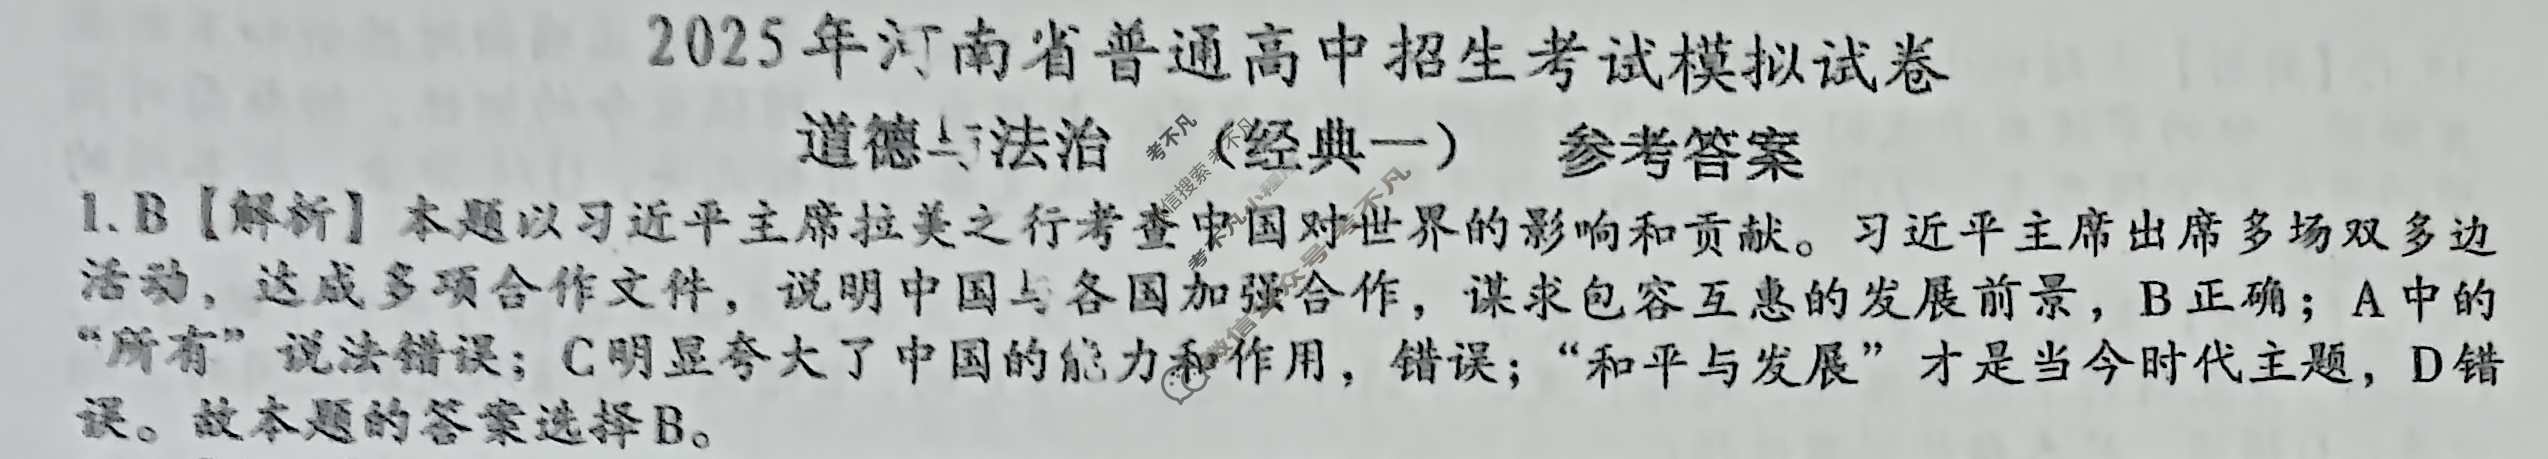 2025年河南省普通高中招生考试模拟试卷
道德与法治 （经典一） 参考答案
1. B【解析】本题以习近平主席拉美之行考查中国对世界的影响和贡献。习近平主席出席多场双多边
活动，达成多项合作文件，说明中国与各国加强合作，谋求包容互惠的发展前景，B正确；A中的
“所有”说法错误；C明显夸大了中国的能力和作用，错误；“和平与发展”才是当今时代主题，D错
误。故本题的答案选择B。
考不凡
微信搜索 考不凡
考不凡小程序
微信公众号 考不凡